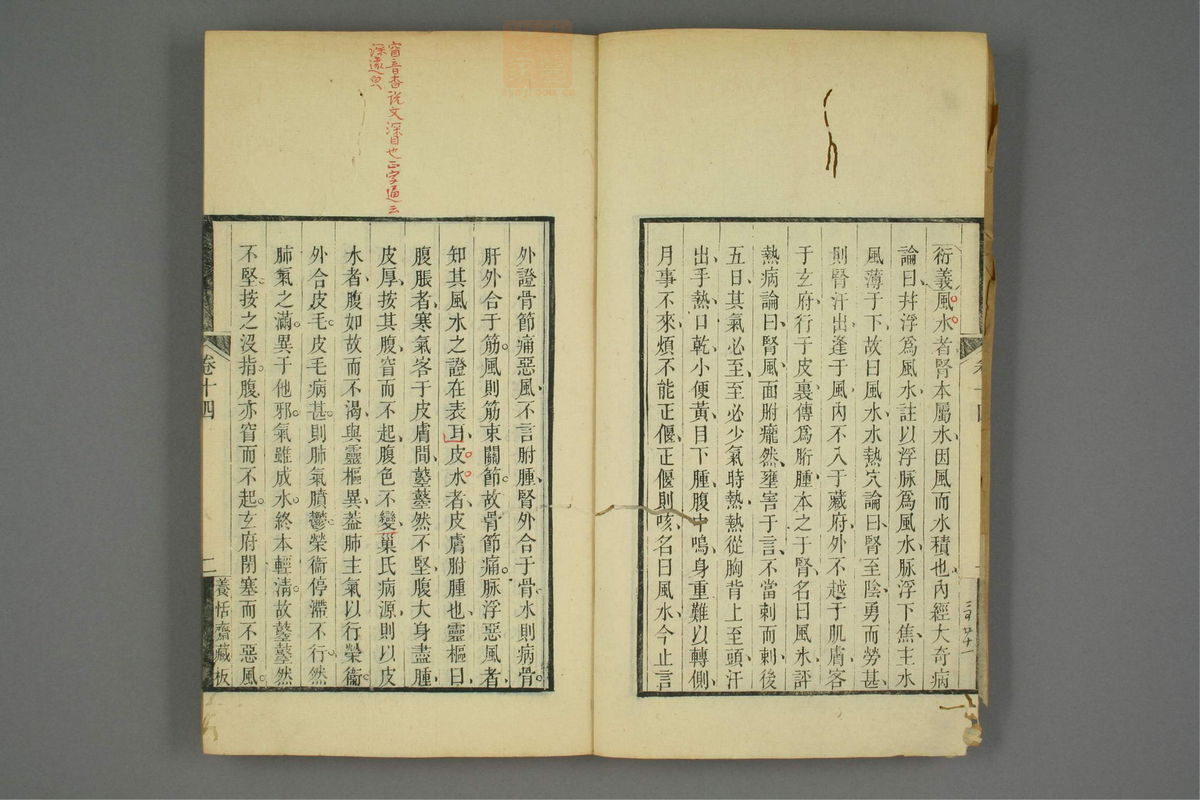 衍義風水者腎本屬水因風而水積也內經大奇病
論曰并浮爲風水註以浮脉爲風水脉浮下焦主水
風薄于下故曰風水水熱穴論曰腎至陰勇而勞甚
則腎汗出逢于風內不入于藏府外不越于肌膚客
于玄府行于皮裏傳爲胕腫本之于腎名曰風水評
熱病論曰腎風面胕癃然壅害于言不當刺而刺後
五日其氣必至至必少氣時熱熱從胸背上至頭汗
出手熱口乾小便黃目下腫腹中鳴身重難以轉側
月事不來煩不能正偃正偃則咳名曰風水今止言
窅音杳說文深目也正字通云
深遠皃
外證骨節痛惡風不言胕腫腎外合于骨水則病骨
肝外合于筋風則筋束關節故骨節痛脉浮惡風者
知其風水之證在表耳皮水者皮膚胕腫也靈樞曰
腹脹者寒氣客于皮膚間鼞鼞然不堅腹大身盡腫
皮厚按其腹窅而不起腹色不變巢氏病源則以皮
水者腹如故而不渴與靈樞異葢肺主氣以行榮衞
外合皮毛皮毛病甚則肺氣膹鬱榮衞停滯不行然
肺氣之滿異于他邪氣雖成水終本輕淸故鼞鼞然
不堅按之沒指腹亦窅而不起玄府閉塞而不惡風
卷十四
二
養恬齋藏板